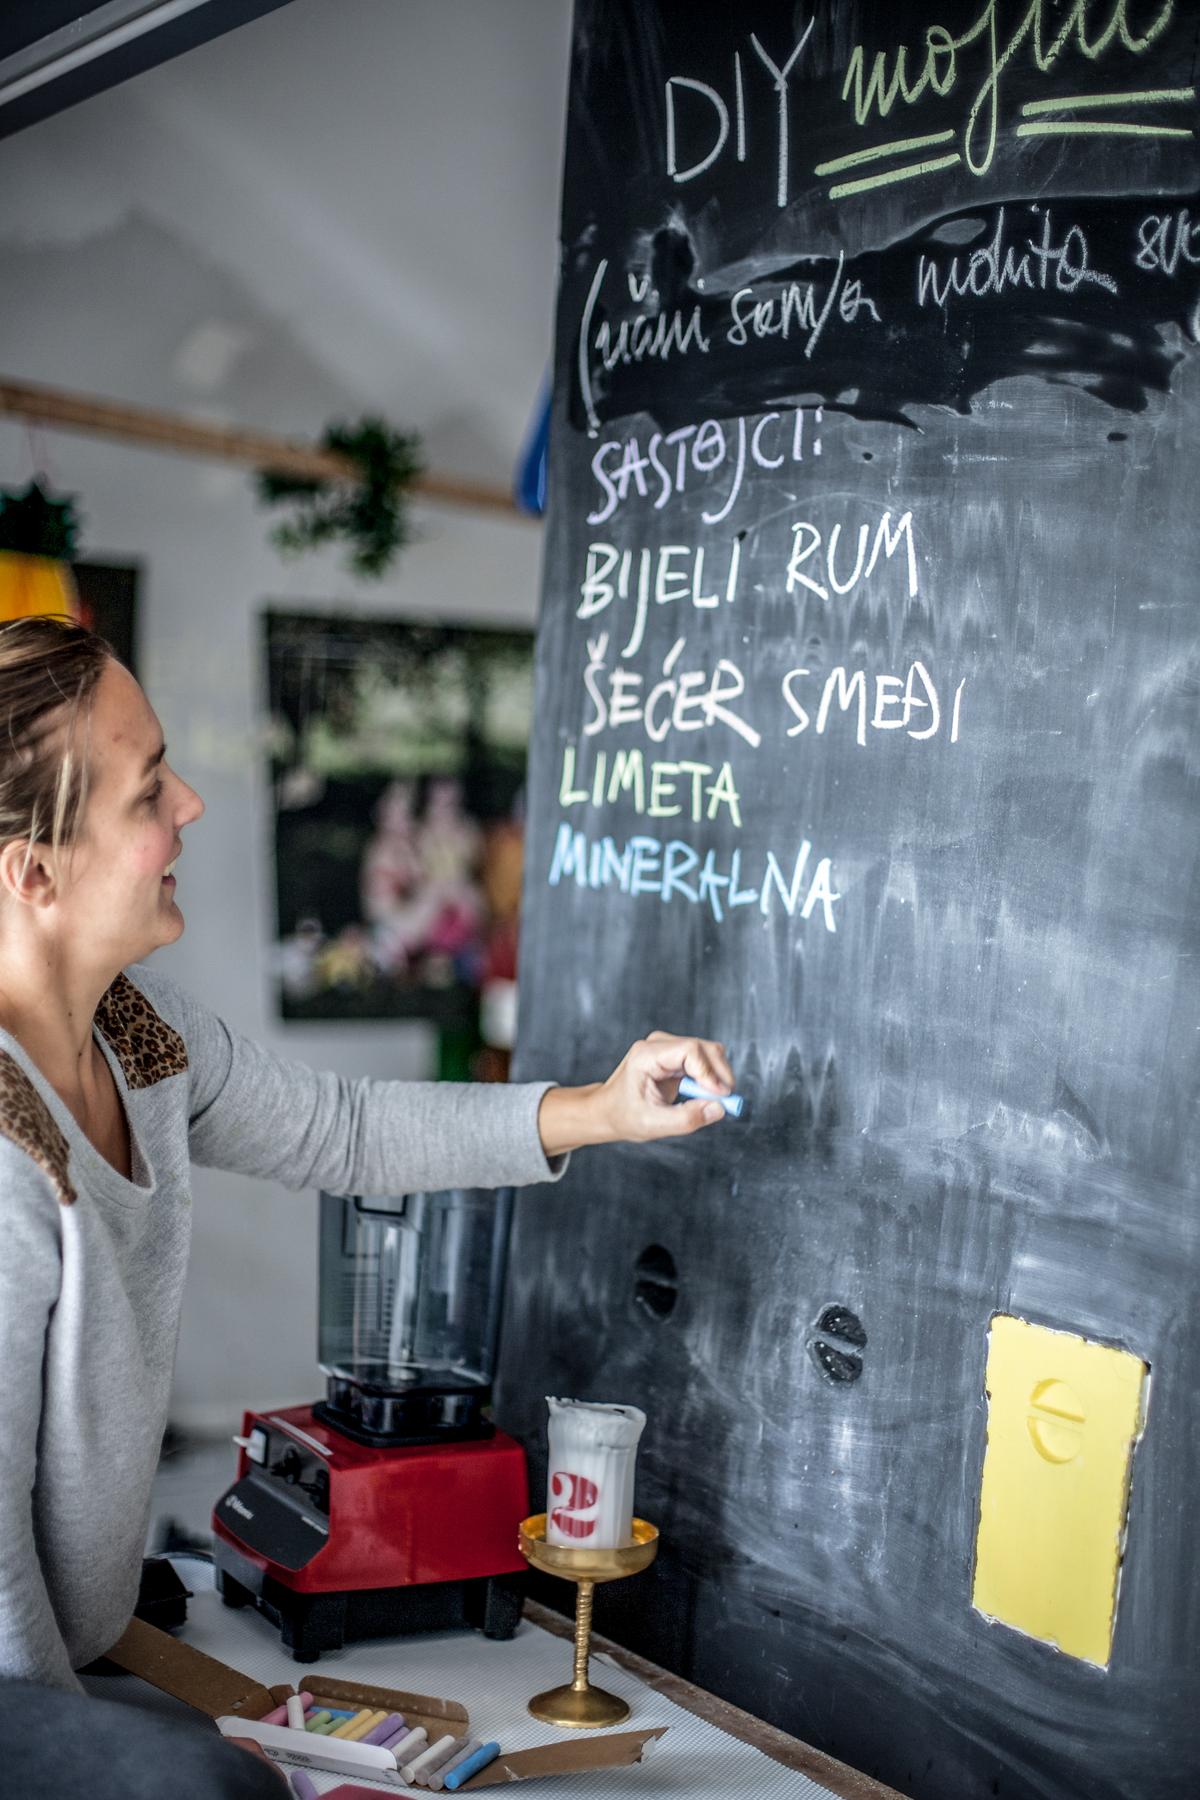 DIY mojito
(učini sam/a mohito sv
SASTOJCI:
BIJELI RUM
ŠEĆER SMEĐI
LIMETA
MINERALNA
2